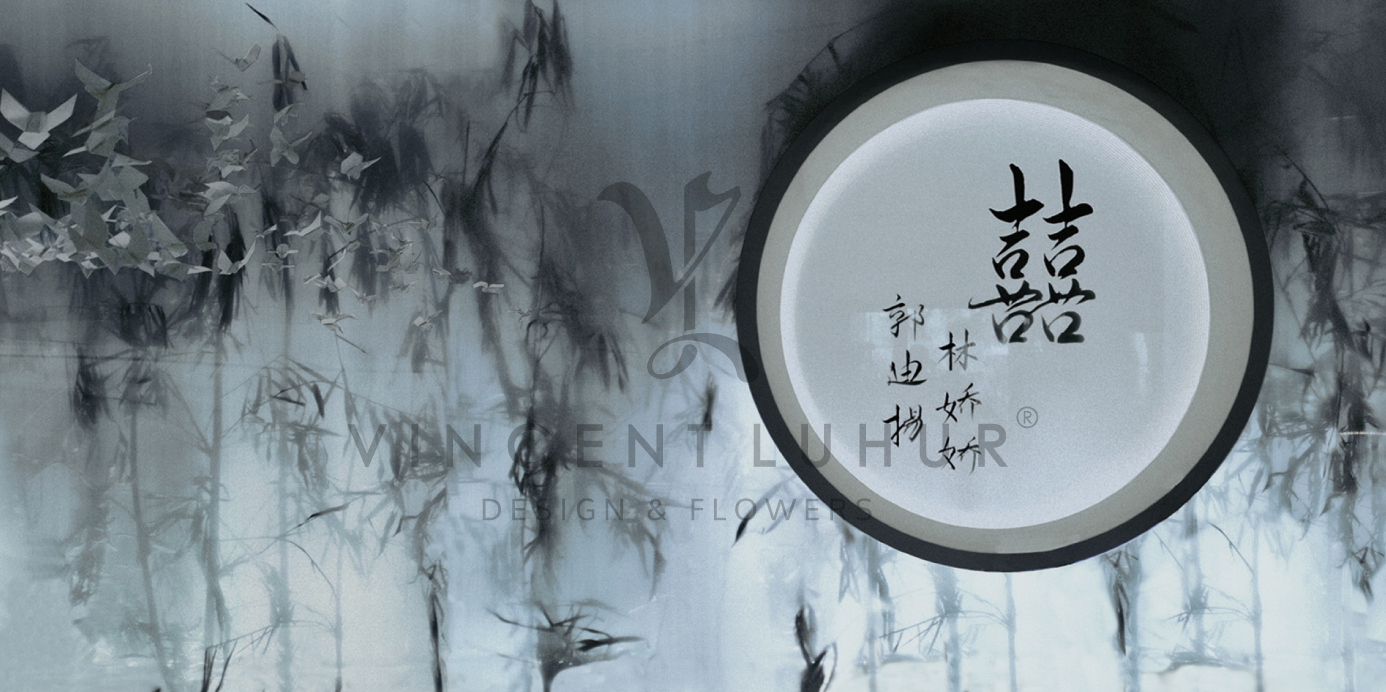 囍
林娇娇
郭迪揚
VINCENT LUHUR®
DESIGN & FLOWERS